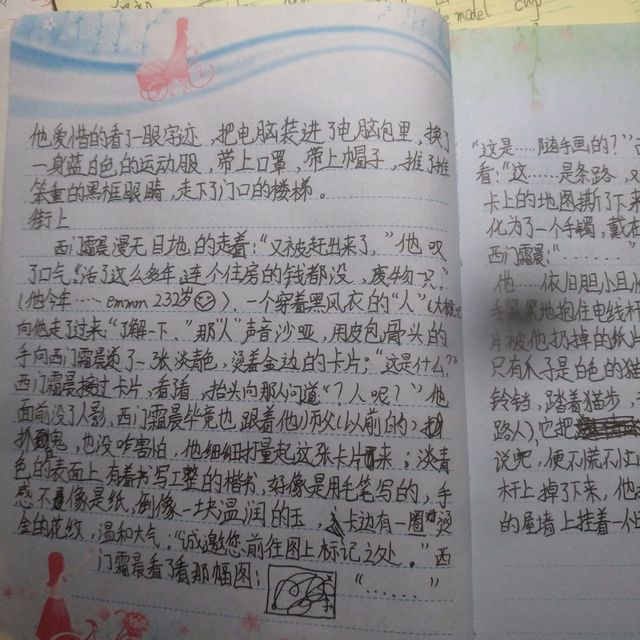 model
他爱惜的看了一眼字迹，把电脑装进了电脑包里，换了
一身蓝白色的运动服，带上口罩，带上帽子，推了推
笨重的黑框眼睛，走下了门口的楼梯。
街上
西门霜晨漫无目地的走着："又被赶出来了，"他叹
了口气，"活了这么多年，连个住房的钱都没，废物一只，"
(他今年……emmm 232岁☺)，一个穿着黑风衣的"人"(大
向他走了过来，"了解一下，"那"人"声音沙哑，用皮包骨头的
手向西门霜晨递了一张淡青色，烫着金边的卡片："这是什么？"
西门霜晨接过卡片，看看，抬头向那人问道"？人呢？"他
面前没了人影，西门霜晨毕竟也跟着他师父(以前的)
鬼，也没啥害怕，他细细打量起这张卡片来；淡青
色的表面上有着书写工整的楷书，好像是用毛笔写的，手
感不像是纸，倒像一块温润的玉，卡边有一圈烫
金的花纹，温和大气："诚邀您前往图上标记之处。"西
门霜晨看了看那幅图： "……"
"这是……随手画的？"
看："这……是条路，又
卡上的地图撕了下来
化为了一个手镯，戴在
西门霜晨："……"
他……依旧胆小且
地抱住电线杆
片被他扔掉的纸片
只有爪子是白色的猫
铃铛，踏着猫步，
路人)，它把
说完，便不慌不忙
杆上掉了下来，他
的屋墙上挂着一